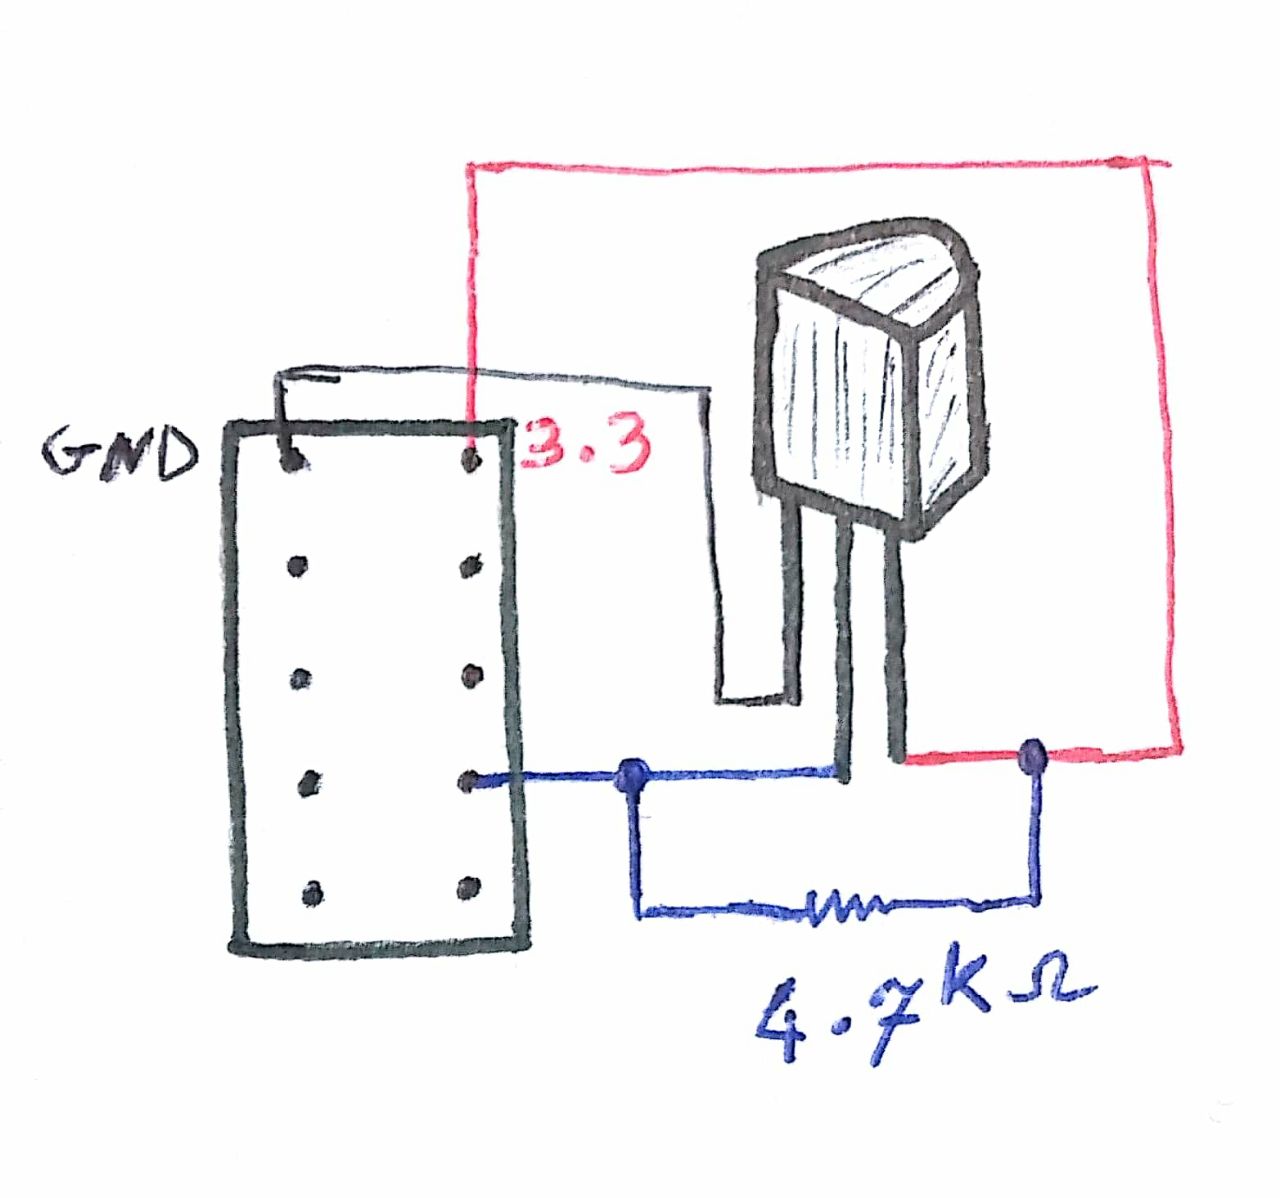 GND
3.3
4.7kΩ